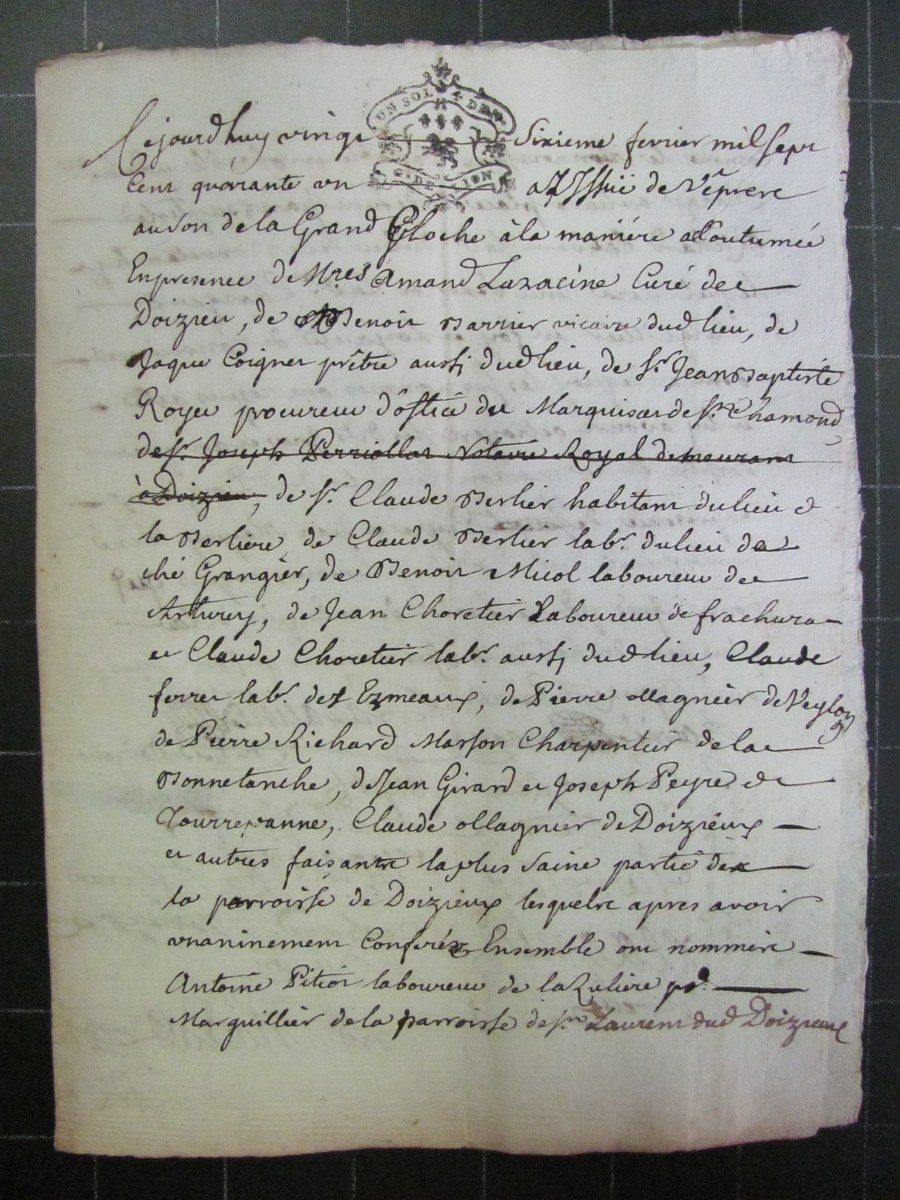 UN SOL 4 DEN
G. DE LION
Cejourdhuy vingt Sixieme fevrier mil sept
Cent quarante un a L'Issuë de Vêpreē
au son de la Grand Cloche à la maniére acoutumée
En presence de Mres Amand Lazacine Curé de
Doizieu, de Benoit Barrier vicaire dud lieu, de
Jaque Coignet prêtre aussi dud lieu, de Sr. Jean Baptiste
Royer procureur d'office du Marquisat de St. Chamond
de Sr. Joseph Perriollat Notaire Royal demeurant
à Doizieu, de Sr. Claude Berlier habitant du lieu d
la Berlière, de Claude Berlier labr. du lieu de
ché Grangier, de Benoit Micol laboureur de
de Jean Choretier Laboureur de frachura
et Claude Choretier labr. aussi dud lieu, Claude
ferret labr. des Ezmeaux, de Pierre ollagnier de Veylon
de Pierre Richard Masson Charpentier de la
Bonnetanche, de Jean Girard et Joseph Peyre de
Tourrepanne, Claude ollagnier de Doiziéux
et autres faisant la plus Saine partie de
la parroisse de Doizieux lesquels apres avoir
unaninement Conferéz Ensemble ont nommére
Antoine Pitiot laboureur de la Rulière pr.
Marguillier de la parroisse de St. Laurent dud Doizieux